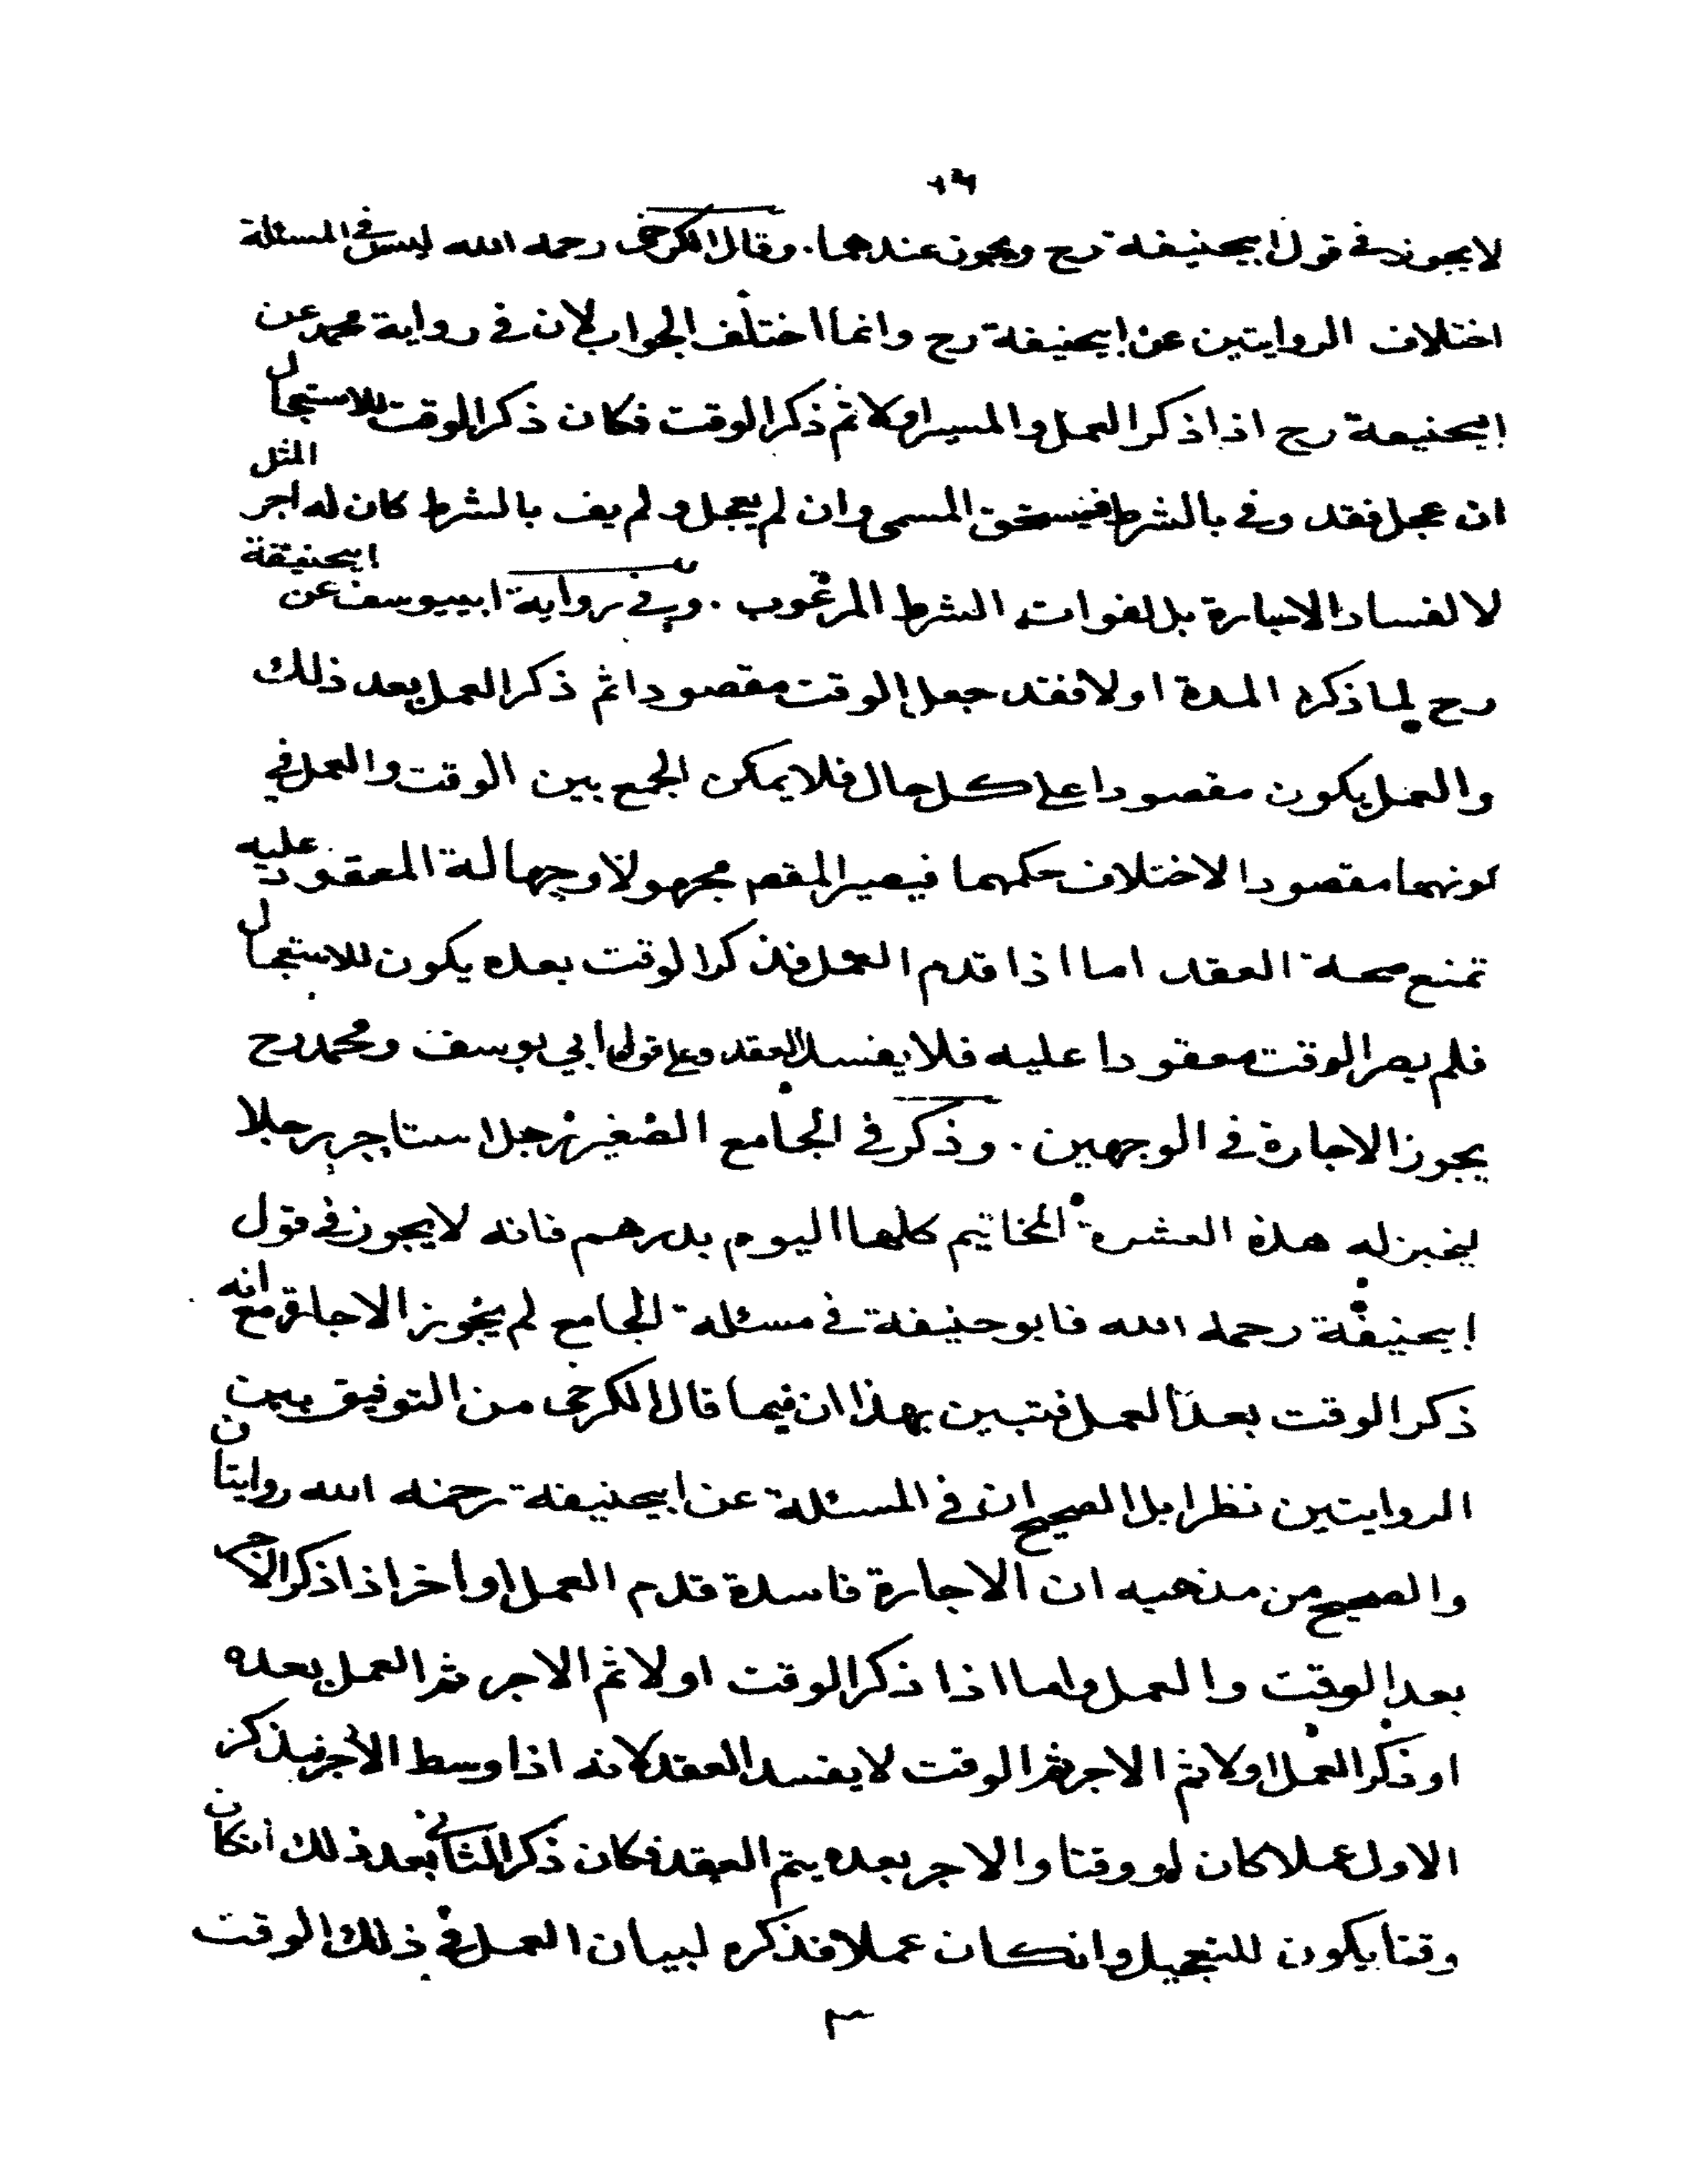 لا يجوز في قول ابيحنيفة رح ويجوز عندهما. وقال الكرخي رحمه الله ليس في المسئلة
اختلاف الروايتين عن ابيحنيفة رح وانما اختلف الجواب لان في رواية محمد عن
ابيحنيفة رح اذا ذكر العمل والمسير اولا ثم ذكر الوقت فكان ذكر الوقت للاستعجال
ان عجل فقد وفي بالشرط فيستحق المسمى وان لم يعجل ولم يف بالشرط كان له اجر المثل
لا لفساد الاجارة بل لفوات الشرط المرغوب. وفي رواية ابييوسف عن ابيحنيفة
رح لما ذكر المدة اولا فقد جعل الوقت مقصودا ثم ذكر العمل بعد ذلك
والعمل يكون مقصودا على كل حال فلا يمكن الجمع بين الوقت والعمل في
كونهما مقصودا لاختلاف حكمهما فيصير مجهولا وجهالة المعقود عليه
تمنع صحة العقد اما اذا قدم العمل فذكر الوقت بعده يكون للاستعجال
فلم يصر الوقت معقودا عليه فلا يفسد العقد وعلى قول ابي يوسف ومحمد رح
يجوز الاجارة في الوجهين. وذكر في الجامع الصغير رجل استاجر رجلا
ليخبز له هذه العشرة المخاتيم كلها اليوم بدرهم فانه لا يجوز في قول
ابيحنيفة رحمه الله فابو حنيفة في مسئلة الجامع لم يجوز الاجارة مع انه
ذكر الوقت بعد العمل فتبين بهذا ان فيما قال الكرخي من التوفيق بين
الروايتين نظرا بل الصحيح ان في المسئلة عن ابيحنيفة رحمه الله روايتان
والصحيح من مذهبه ان الاجارة فاسدة قدم العمل او اخر اذا ذكر الاجر
بعد الوقت والعمل واما اذا ذكر الوقت اولا ثم الاجر ثم العمل بعده
او ذكر العمل اولا ثم الاجر ثم الوقت لا يفسد العقد لانه اذا وسط الاجر فبذكر
الاول عملا كان او وقتا والاجر بعده يتم العقد فكان ذكر الثاني بعد ذلك انكان
وقتا يكون للتعجيل وانكان عملا فذكره لبيان العمل في ذلك الوقت